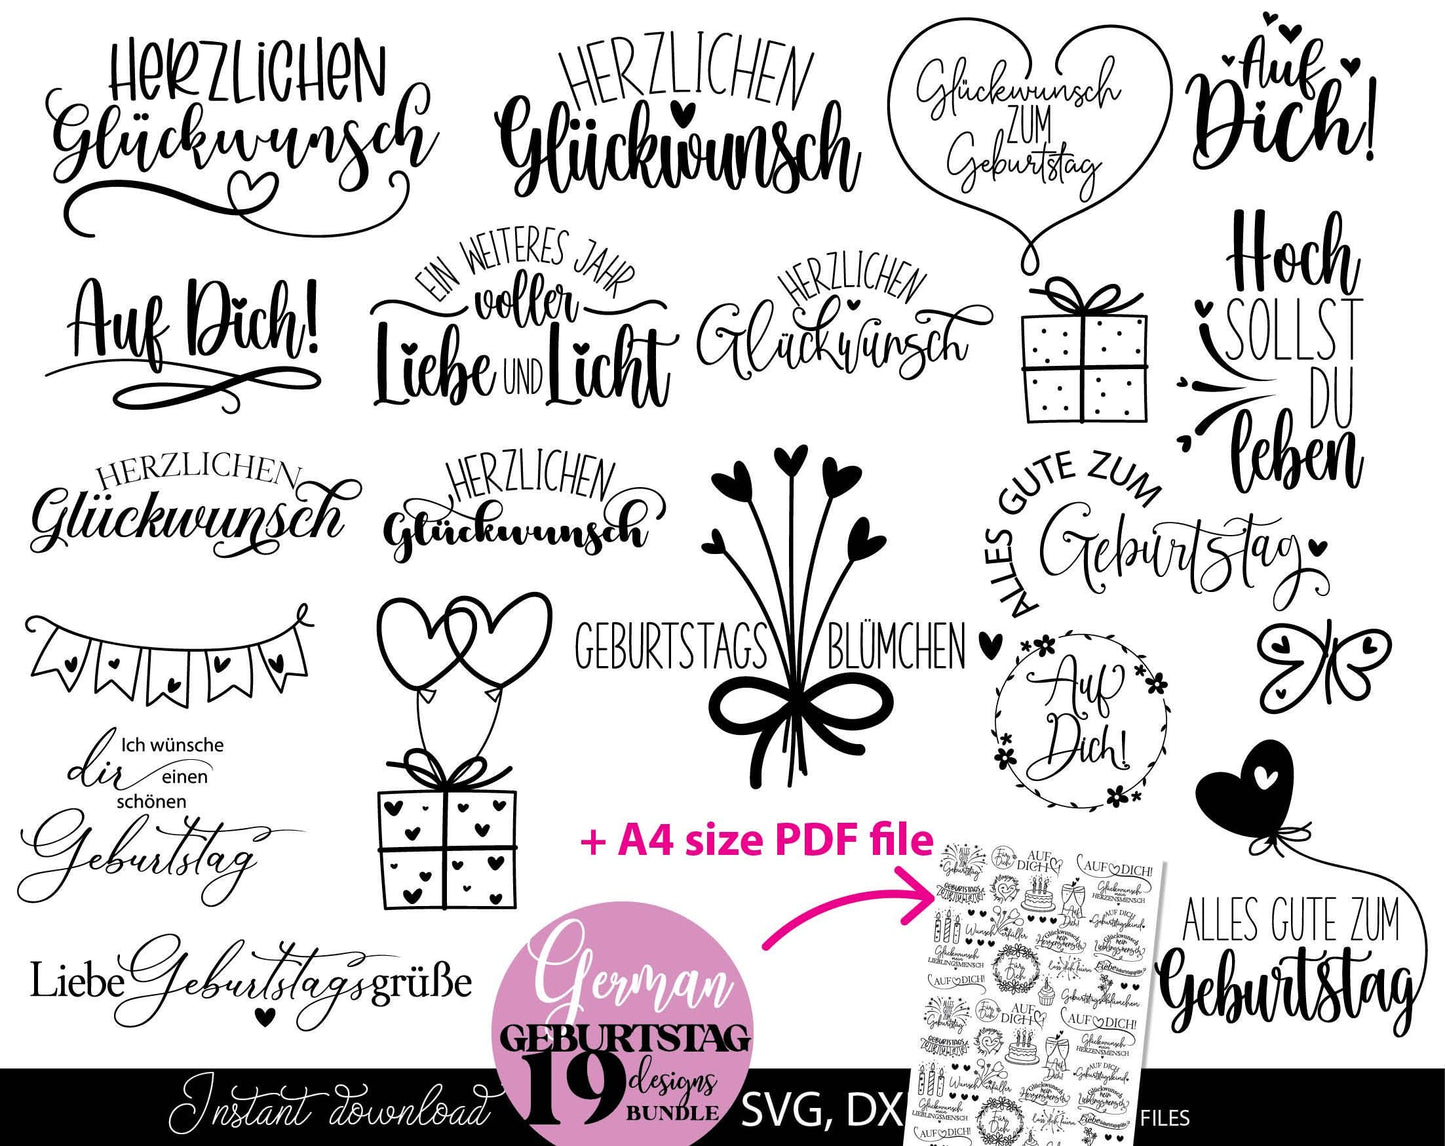 HERZLICHEN
Glückwunsch
HERZLICHEN
Glückwunsch
Glückwunsch
ZUM
Geburtstag
Auf
Dich!
Auf Dich!
EIN WEITERES JAHR
voller
Liebe UND Licht
HERZLICHEN
Glückwunsch
Hoch
SOLLST
DU
leben
HERZLICHEN
Glückwunsch
HERZLICHEN
Glückwunsch
GEBURTSTAGS BLÜMCHEN
ALLES GUTE ZUM
Geburtstag
Auf
Dich!
Ich wünsche
dir einen
schönen
Geburtstag
Liebe Geburtstagsgrüße
ALLES GUTE ZUM
Geburtstag
+ A4 size PDF file
German
GEBURTSTAG
19 designs
BUNDLE
Instant download
SVG, DX
FILES
AUF
DICH
AUF DICH!
Glückwunsch
HERZENSMENSCH